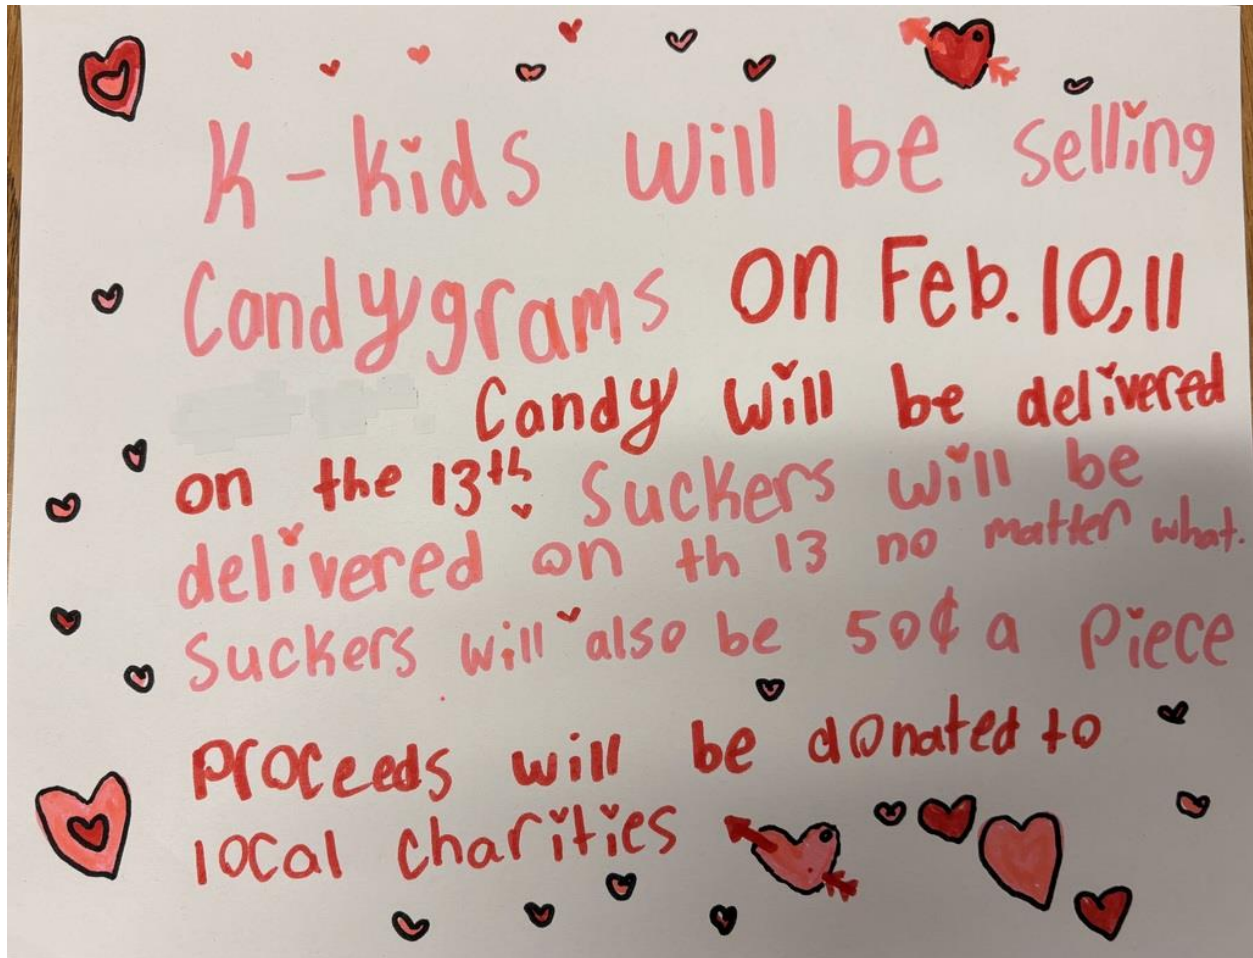 K-kids will be selling
Candygrams on Feb. 10, 11
Candy will be delivered
on the 13th. Suckers will be
delivered on th 13 no matter what.
Suckers will also be 50¢ a Piece
Proceeds will be donated to
local charities